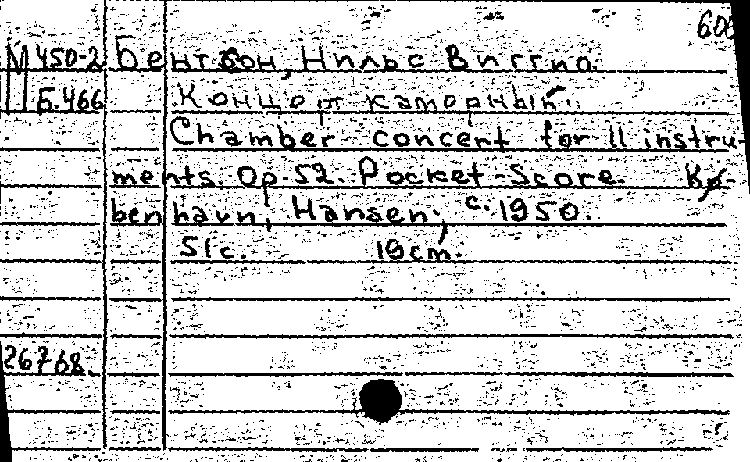 М450-2 Бентсон, Нильс Вигго.
Б.466 Концерт камерный.
Chamber concert for 11 instru-
ments. Op. 52. Pocket-Score. Kø-
benhavn, Hansen, c. 1950.
51c. 19cm.
26768.